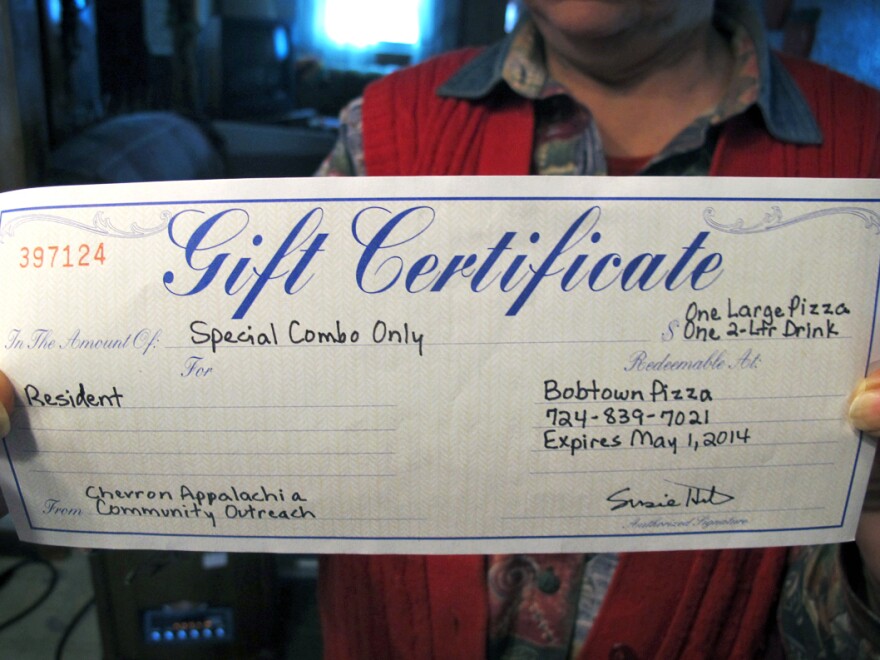 Gift Certificate
397124
One Large Pizza
In The Amount Of: Special Combo Only $ One 2-Ltr Drink
For
Redeemable At:
Resident
Bobtown Pizza
724-839-7021
Expires May 1, 2014
Chevron Appalachia
From Community Outreach
Susie
Authorized Signature